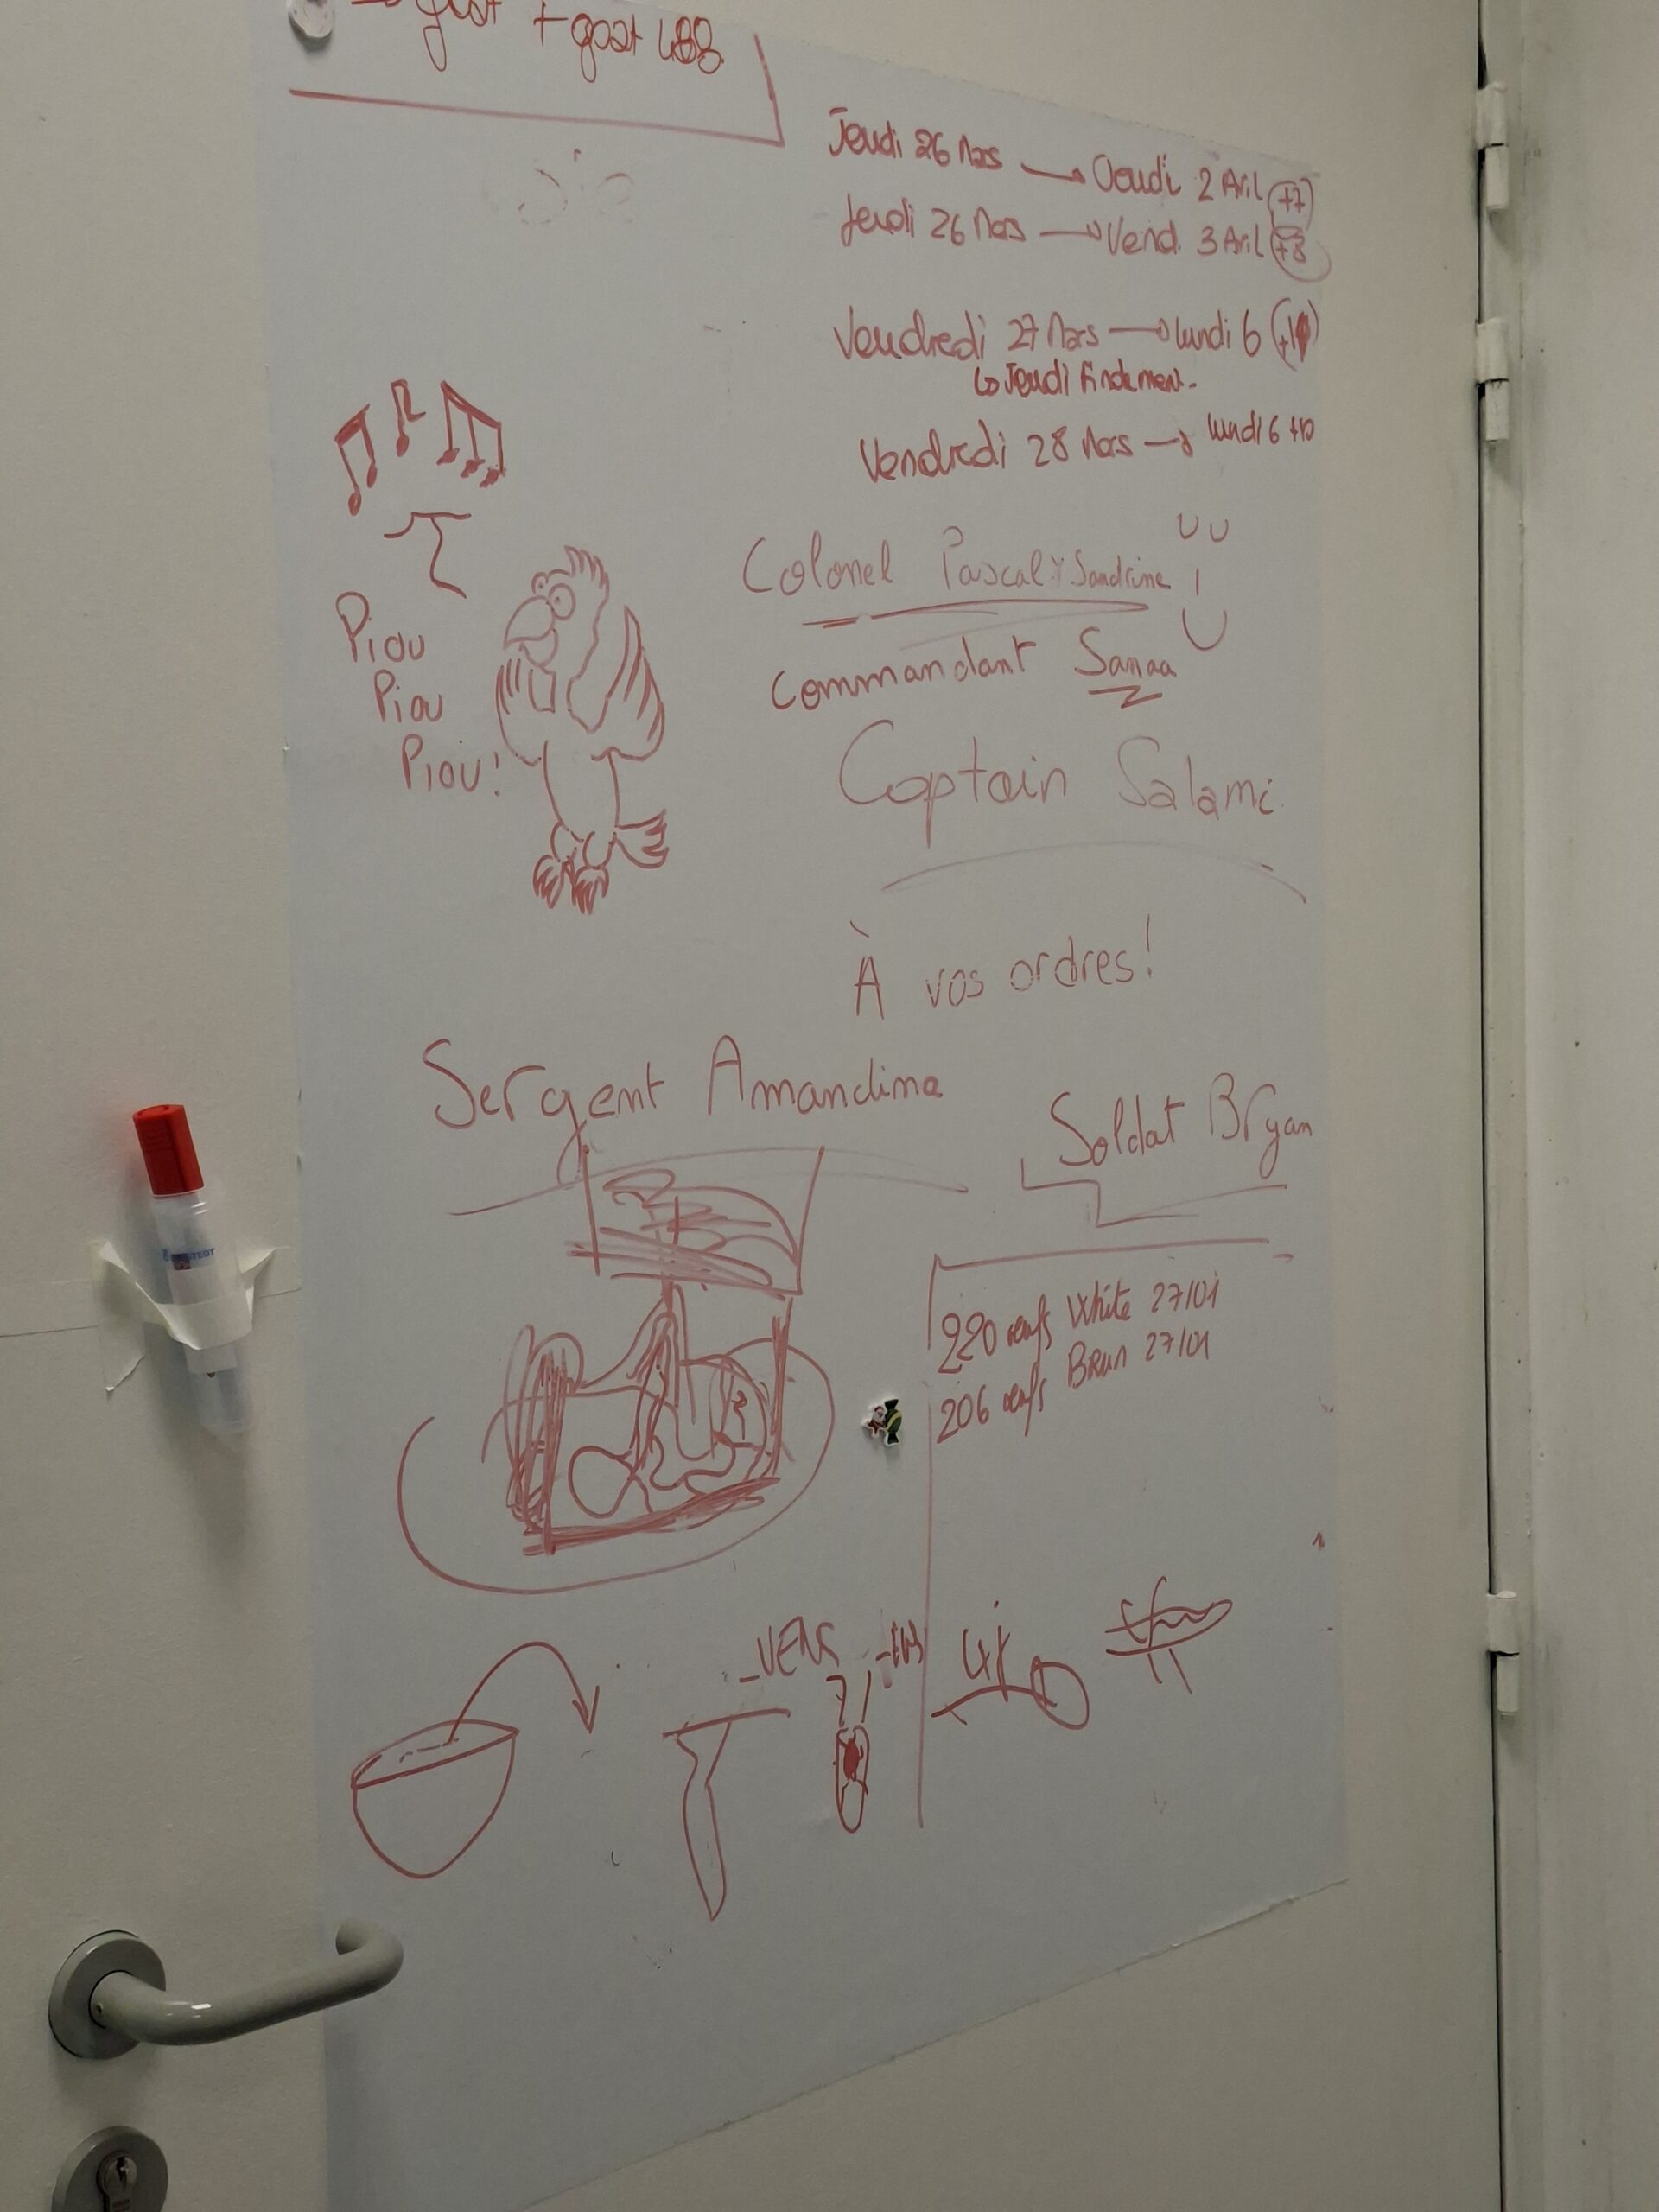 + goat 488
Jeudi 26 Mars → Jeudi 2 Avril +7
Jeudi 26 Mars → Vend. 3 Avril +8
Vendredi 27 Mars → Lundi 6
↳ Jeudi finalement.
Vendredi 28 Mars → lundi 6 +10
Colonel Pascal Sandrine
Commandant Sanaa
Piou
Piou
Piou!
Captain Salami
À vos ordres!
Sergent Amandine
Soldat Bryan
220 œufs White 27/01
206 œufs Brun 27/01